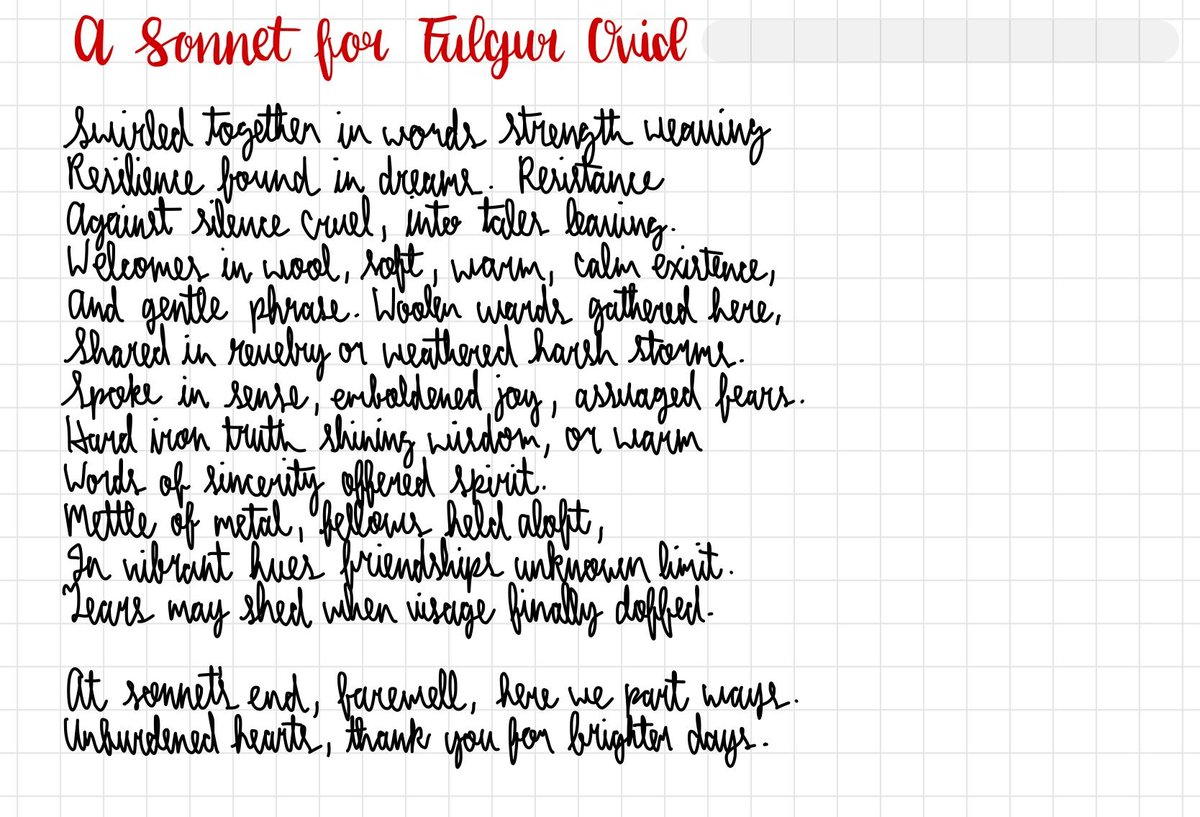 A Sonnet for Fulgur Ovid
Swirled together in words strength weaving
Resilience found in dreams. Resistance
Against silence cruel, into tales leaving.
Welcomes in wool, soft, warm, calm existence,
And gentle phrase. Woolen wards gathered here,
Shared in revelry or weathered harsh storms.
Spoke in sense, emboldened joy, assuaged fears.
Hard iron truth shining wisdom, or warm
Words of sincerity offered spirit.
Mettle of metal, fellows held aloft,
In vibrant hues friendships unknown limit.
Tears may shed when visage finally doffed.
At sonnet's end, farewell, here we part ways.
Unburdened hearts, thank you for brighter days.